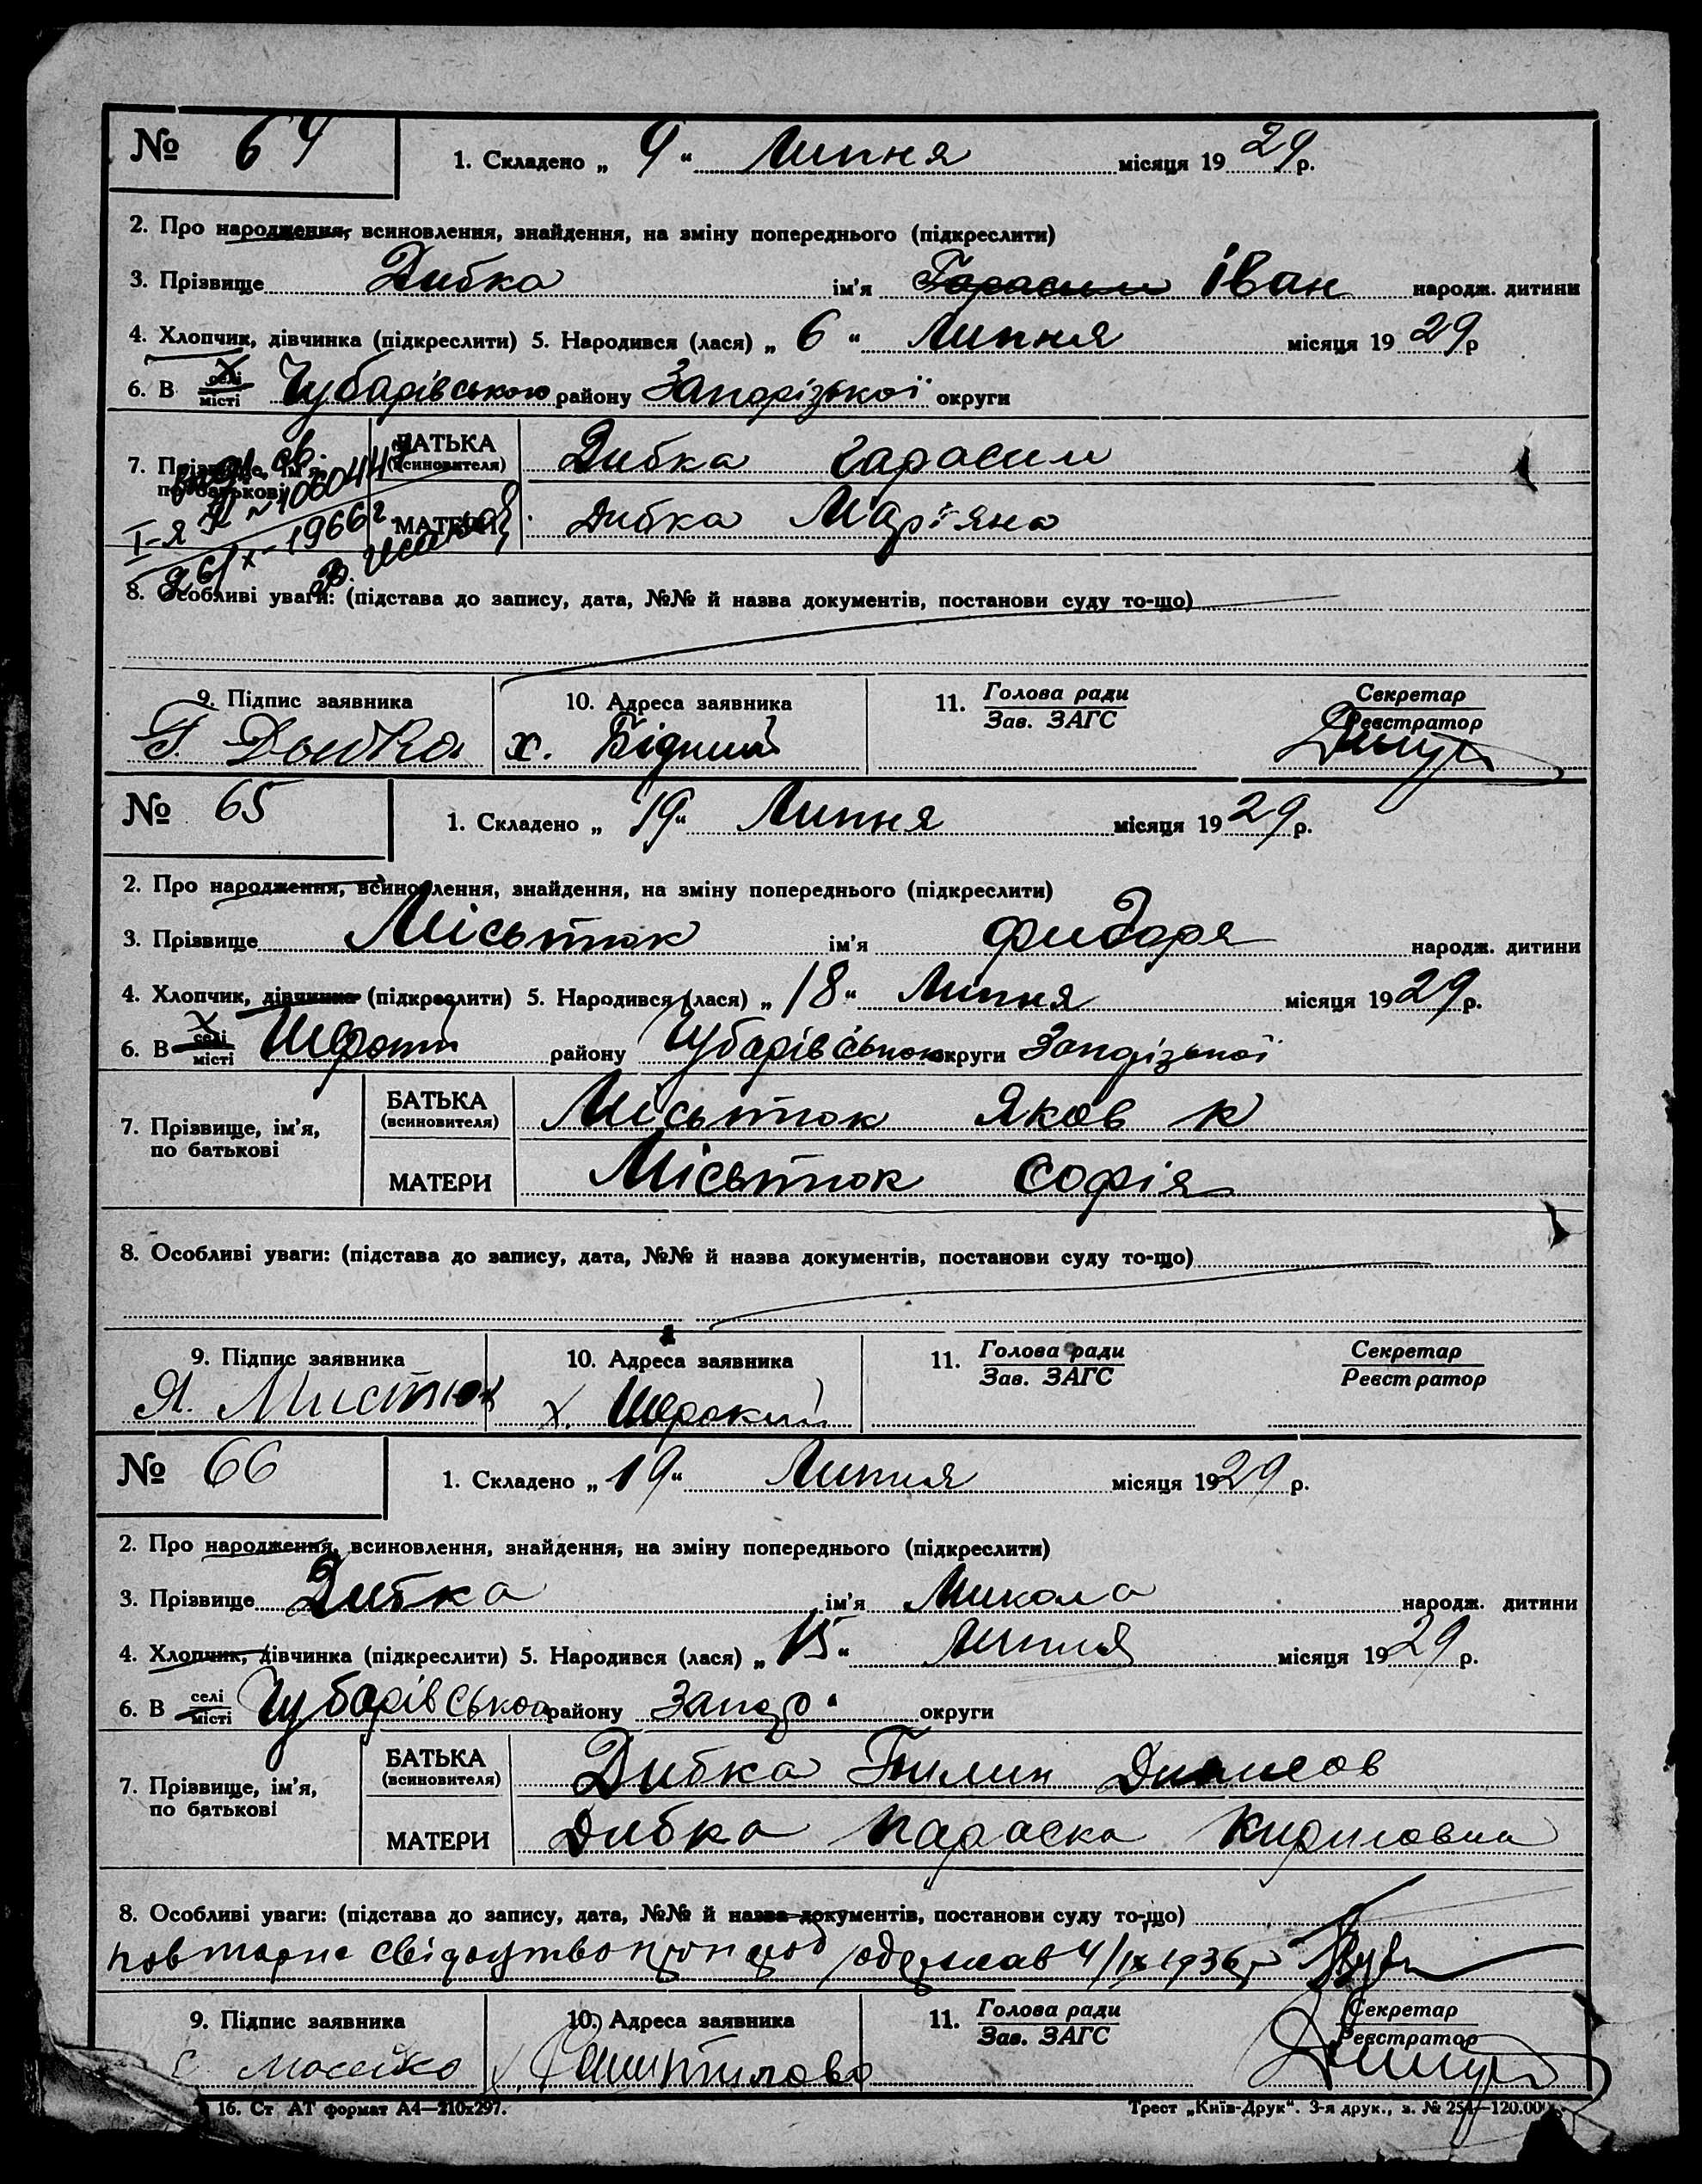 № 64
1. Складено „ 9 “ Липня місяця 1929 р.
2. Про народження, всиновлення, знайдення, на зміну попереднього (підкреслити)
3. Прізвище Дибка ім'я Гарасим Іван народж. дитини
4. Хлопчик, дівчинка (підкреслити) 5. Народився (лася) „ 6 “ Липня місяця 1929 р
6. В селі місті Чубарівського району Запорізької округи
7. Прізвище, ім'я, по батькові
БАТЬКА (всиновителя) Дибка Гарасим
МАТЕРИ Дибка Мар'яна
1966 г
8. Особливі уваги: (підстава до запису, дата, №№ й назва документів, постанови суду то-що)
9. Підпис заявника 10. Адреса заявника 11. Голова ради Зав. ЗАГС Секретар Реєстратор
Г. Дыбка х. Бідний
№ 65
1. Складено „ 19 “ Липня місяця 1929 р.
2. Про народження, всиновлення, знайдення, на зміну попереднього (підкреслити)
3. Прізвище Місьтюк ім'я Фидоря народж. дитини
4. Хлопчик, дівчинка (підкреслити) 5. Народився (лася) „ 18 “ Липня місяця 1929 р.
6. В селі місті району Чубарівського округи Запорізької
7. Прізвище, ім'я, по батькові
БАТЬКА (всиновителя) Місьтюк Яков К
МАТЕРИ Місьтюк Софія
8. Особливі уваги: (підстава до запису, дата, №№ й назва документів, постанови суду то-що)
9. Підпис заявника 10. Адреса заявника 11. Голова ради Зав. ЗАГС Секретар Реєстратор
Я. Мистюк х. Широкий
№ 66
1. Складено „ 19 “ Липня місяця 1929 р.
2. Про народження, всиновлення, знайдення, на зміну попереднього (підкреслити)
3. Прізвище Дибка ім'я Микола народж. дитини
4. Хлопчик, дівчинка (підкреслити) 5. Народився (лася) „ 15 “ Липня місяця 1929 р.
6. В селі місті Чубарівського району Запор. округи
7. Прізвище, ім'я, по батькові
БАТЬКА (всиновителя) Дибка Пилип
МАТЕРИ Дибка Параска Кириловна
8. Особливі уваги: (підстава до запису, дата, №№ й назва документів, постанови суду то-що)
повторне свідоцтво одержав 4/IX 1936 р
9. Підпис заявника 10. Адреса заявника 11. Голова ради Зав. ЗАГС Секретар Реєстратор
16. Ст АТ формат А4—210х297. Трест „Київ-Друк“. 3-я друк., з. № 254—120.000